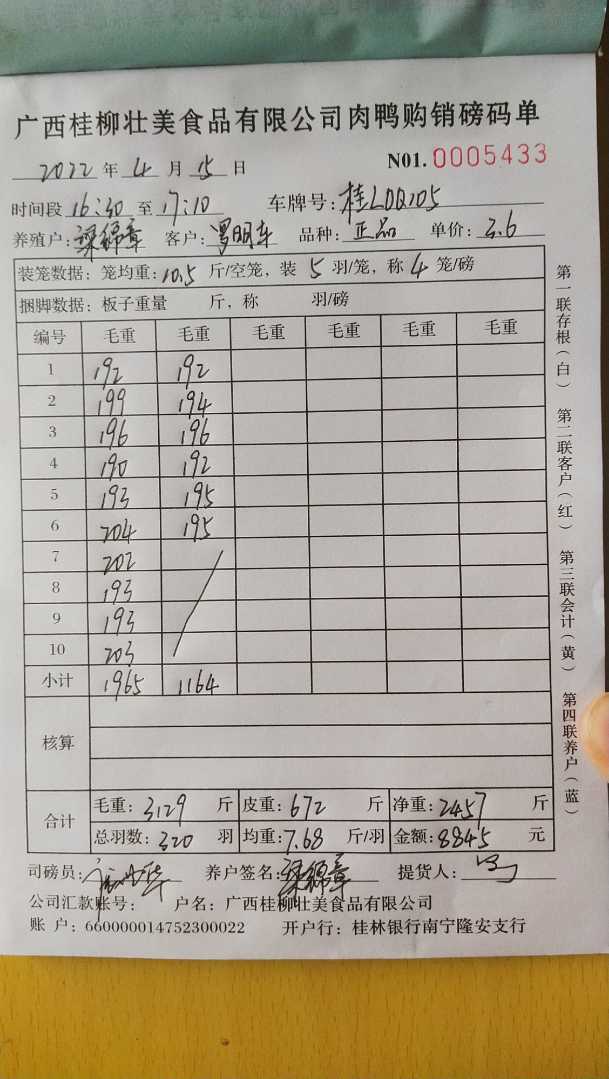 广西桂柳壮美食品有限公司肉鸭购销磅码单
2022 年 4 月 15 日 N01. 0005433
时间段 16:30 至 17:10 车牌号: 桂LDQ105
养殖户: 梁锦章 客户: 罗明车 品种: 正品 单价: 3.6
装笼数据: 笼均重: 10.5 斤/空笼, 装 5 羽/笼, 称 4 笼/磅
捆脚数据: 板子重量 斤, 称 羽/磅
编号 毛重 毛重 毛重 毛重 毛重 毛重
1 192 192
2 199 194
3 196 196
4 190 192
5 193 195
6 204 195
7 202
8 193
9 193
10 203
小计 1965 1164
核算
合计 毛重: 3129 斤 皮重: 672 斤 净重: 2457 斤
总羽数: 320 羽 均重: 7.68 斤/羽 金额: 8845 元
司磅员: 养户签名: 梁锦章 提货人:
公司汇款账号: 户名: 广西桂柳壮美食品有限公司
账 户: 660000014752300022 开户行: 桂林银行南宁隆安支行
第一联存根(白) 第二联客户(红) 第三联会计(黄) 第四联养户(蓝)